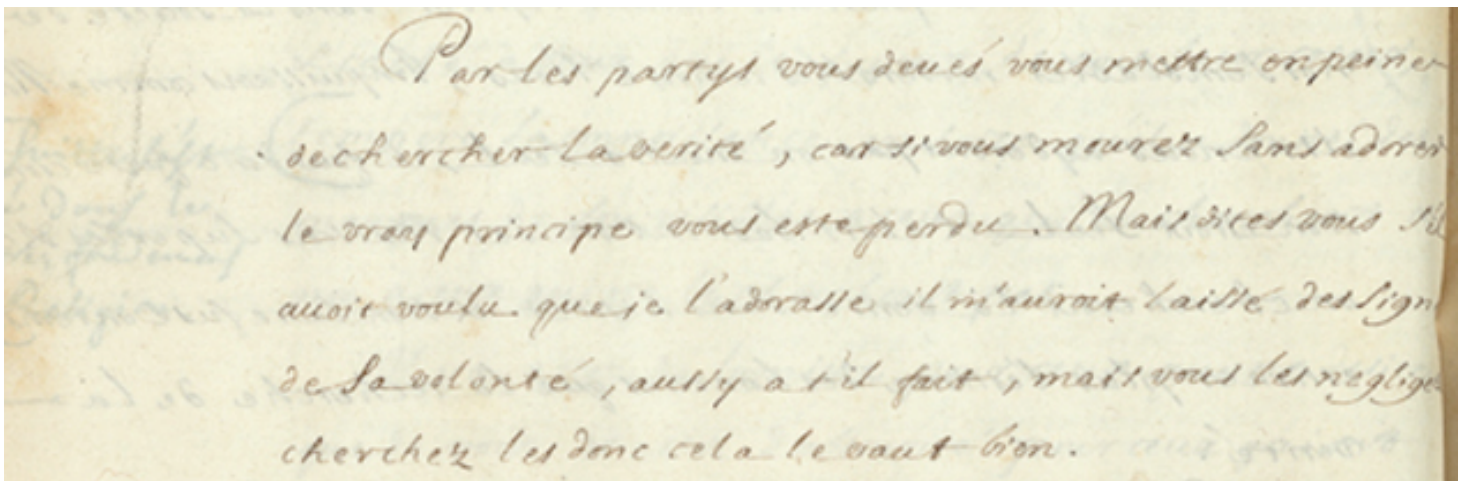 Par les partys vous deués vous mettre en peine
de chercher la verité, car si vous mourez sans adorer
le vray principe vous este perdu. Mais dites vous s'il
auoit voulu que je l'adorasse il m'auroit laissé des sign
de sa volonté, aussy a t'il fait, mais vous les neglige
cherchez les donc cela le vaut bien.